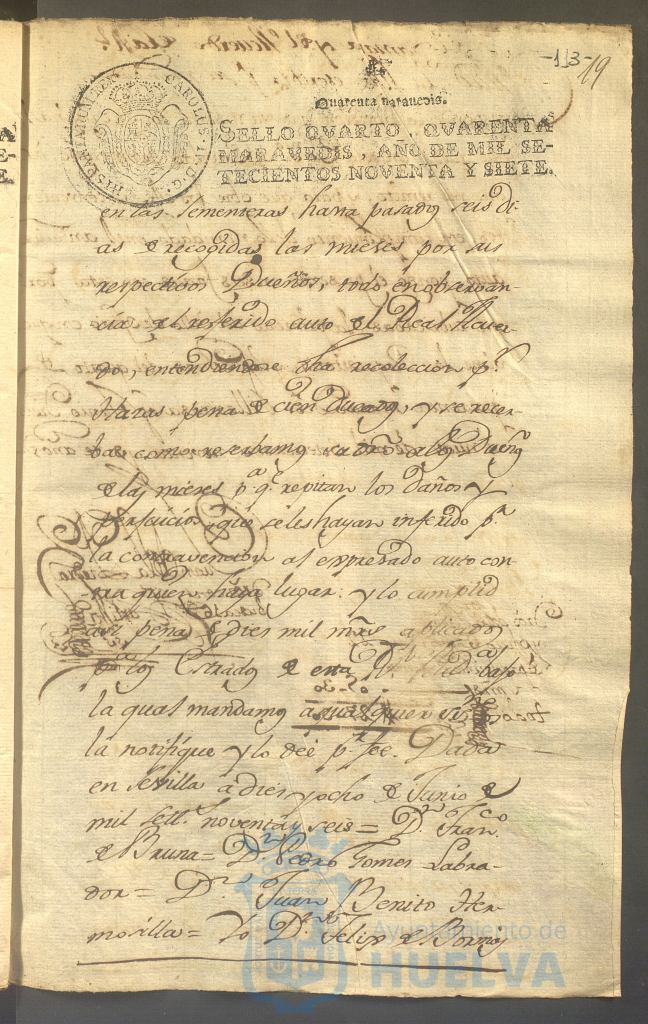 -113-
19
Quarenta marauedis.
SELLO QVARTO, QVARENTA
MARAVEDIS, AÑO DE MIL SE-
TECIENTOS NOVENTA Y SIETE.
CAROLUS IV D G HISPANIARUM
en las sementeras hasta pasados seis di-
as de recogidas las mieses por sus
respectivos Dueños, todo en obserban-
cia del referido auto del Real Acuer-
do, entendiendose dha recoleccion pr.
Hazas pena de cien Ducados, y se reser-
ba como reserbamos su dro a los Dueños
de las mieses pa. q. repitan los daños y
perjuicios que se les hayan inferido pr.
la contravencion al expresado auto con-
tra quien haya lugar: y lo cumplid
asi pena de dies mil mrs aplicados
pa. los Estrados de esta Rl. Auda. bajo
la qual mandamos a qualquier Ss.no
la notifique y lo dee pr. fee. Dada
en Sevilla a dies y ocho de Junio de
mil sett.s noventa y seis = Dn. Franco.
de Bruna = Dn. Pedro Gomes Labra-
dor = Dn. Juan Benito Her-
mosilla = Yo Dn. Felix de Bormas
Ayuntamiento de
HUELVA